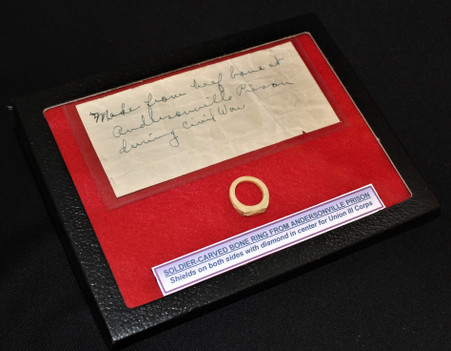 Made from beef bone at
Andersonville Prison
during Civil War
SOLDIER-CARVED BONE RING FROM ANDERSONVILLE PRISON
Shields on both sides with diamond in center for Union III Corps